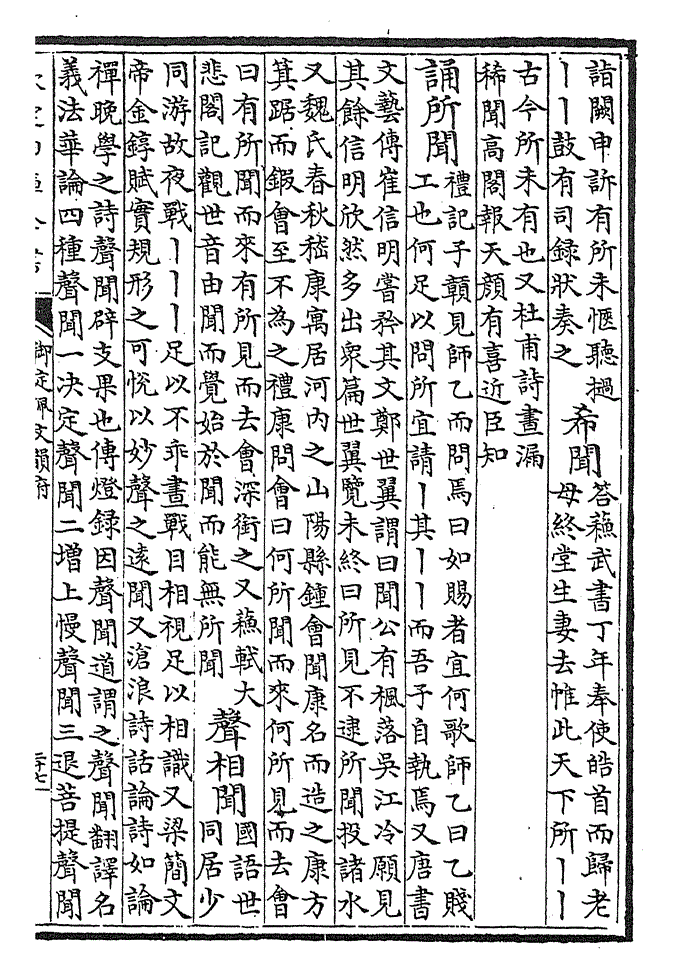 詣闕申訴有所未愜聽撾
丨丨鼓有司録狀奏之
希聞
答蘇武書丁年奉使皓首而歸老
母終堂生妻去帷此天下所丨丨
古今所未有也又杜甫詩晝漏
稀聞高閣報天顔有喜近臣知
誦所聞
禮記子贛見師乙而問焉曰如賜者宜何歌師乙曰乙賤
工也何足以問所宜請丨其丨丨而吾子自執焉又唐書
文藝傳崔信明嘗矜其文鄭世翼謂曰聞公有楓落吳江冷願見
其餘信明欣然多出衆篇世翼覽未終曰所見不逮所聞投諸水
又魏氏春秋嵇康寓居河内之山陽縣鍾會聞康名而造之康方
箕踞而鍜會至不為之禮康問會曰何所聞而來何所見而去會
曰有所聞而來有所見而去會深銜之又蘇軾大
悲閣記觀世音由聞而覺始於聞而能無所聞
聲相聞
國語世
同居少
同游故夜戰丨丨丨足以不乖晝戰目相視足以相識又梁簡文
帝金錞賦實規形之可悦以妙聲之遠聞又滄浪詩話論詩如論
禪晚學之詩聲聞辟支果也傳燈録因聲聞道謂之聲聞翻譯名
義法華論四種聲聞一决定聲聞二增上慢聲聞三退菩提聲聞
御定佩文韻府